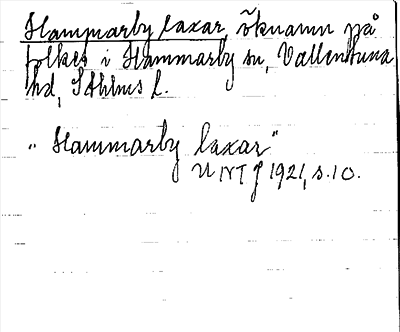 Hammarby laxar, öknamn på
folket i Hammarby sn, Vallentuna
hd, Sthlms l.
"Hammarby laxar"
UNT J 1921, s. 10.